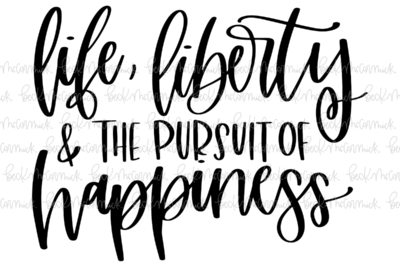 life, liberty
& THE PURSUIT OF
happiness